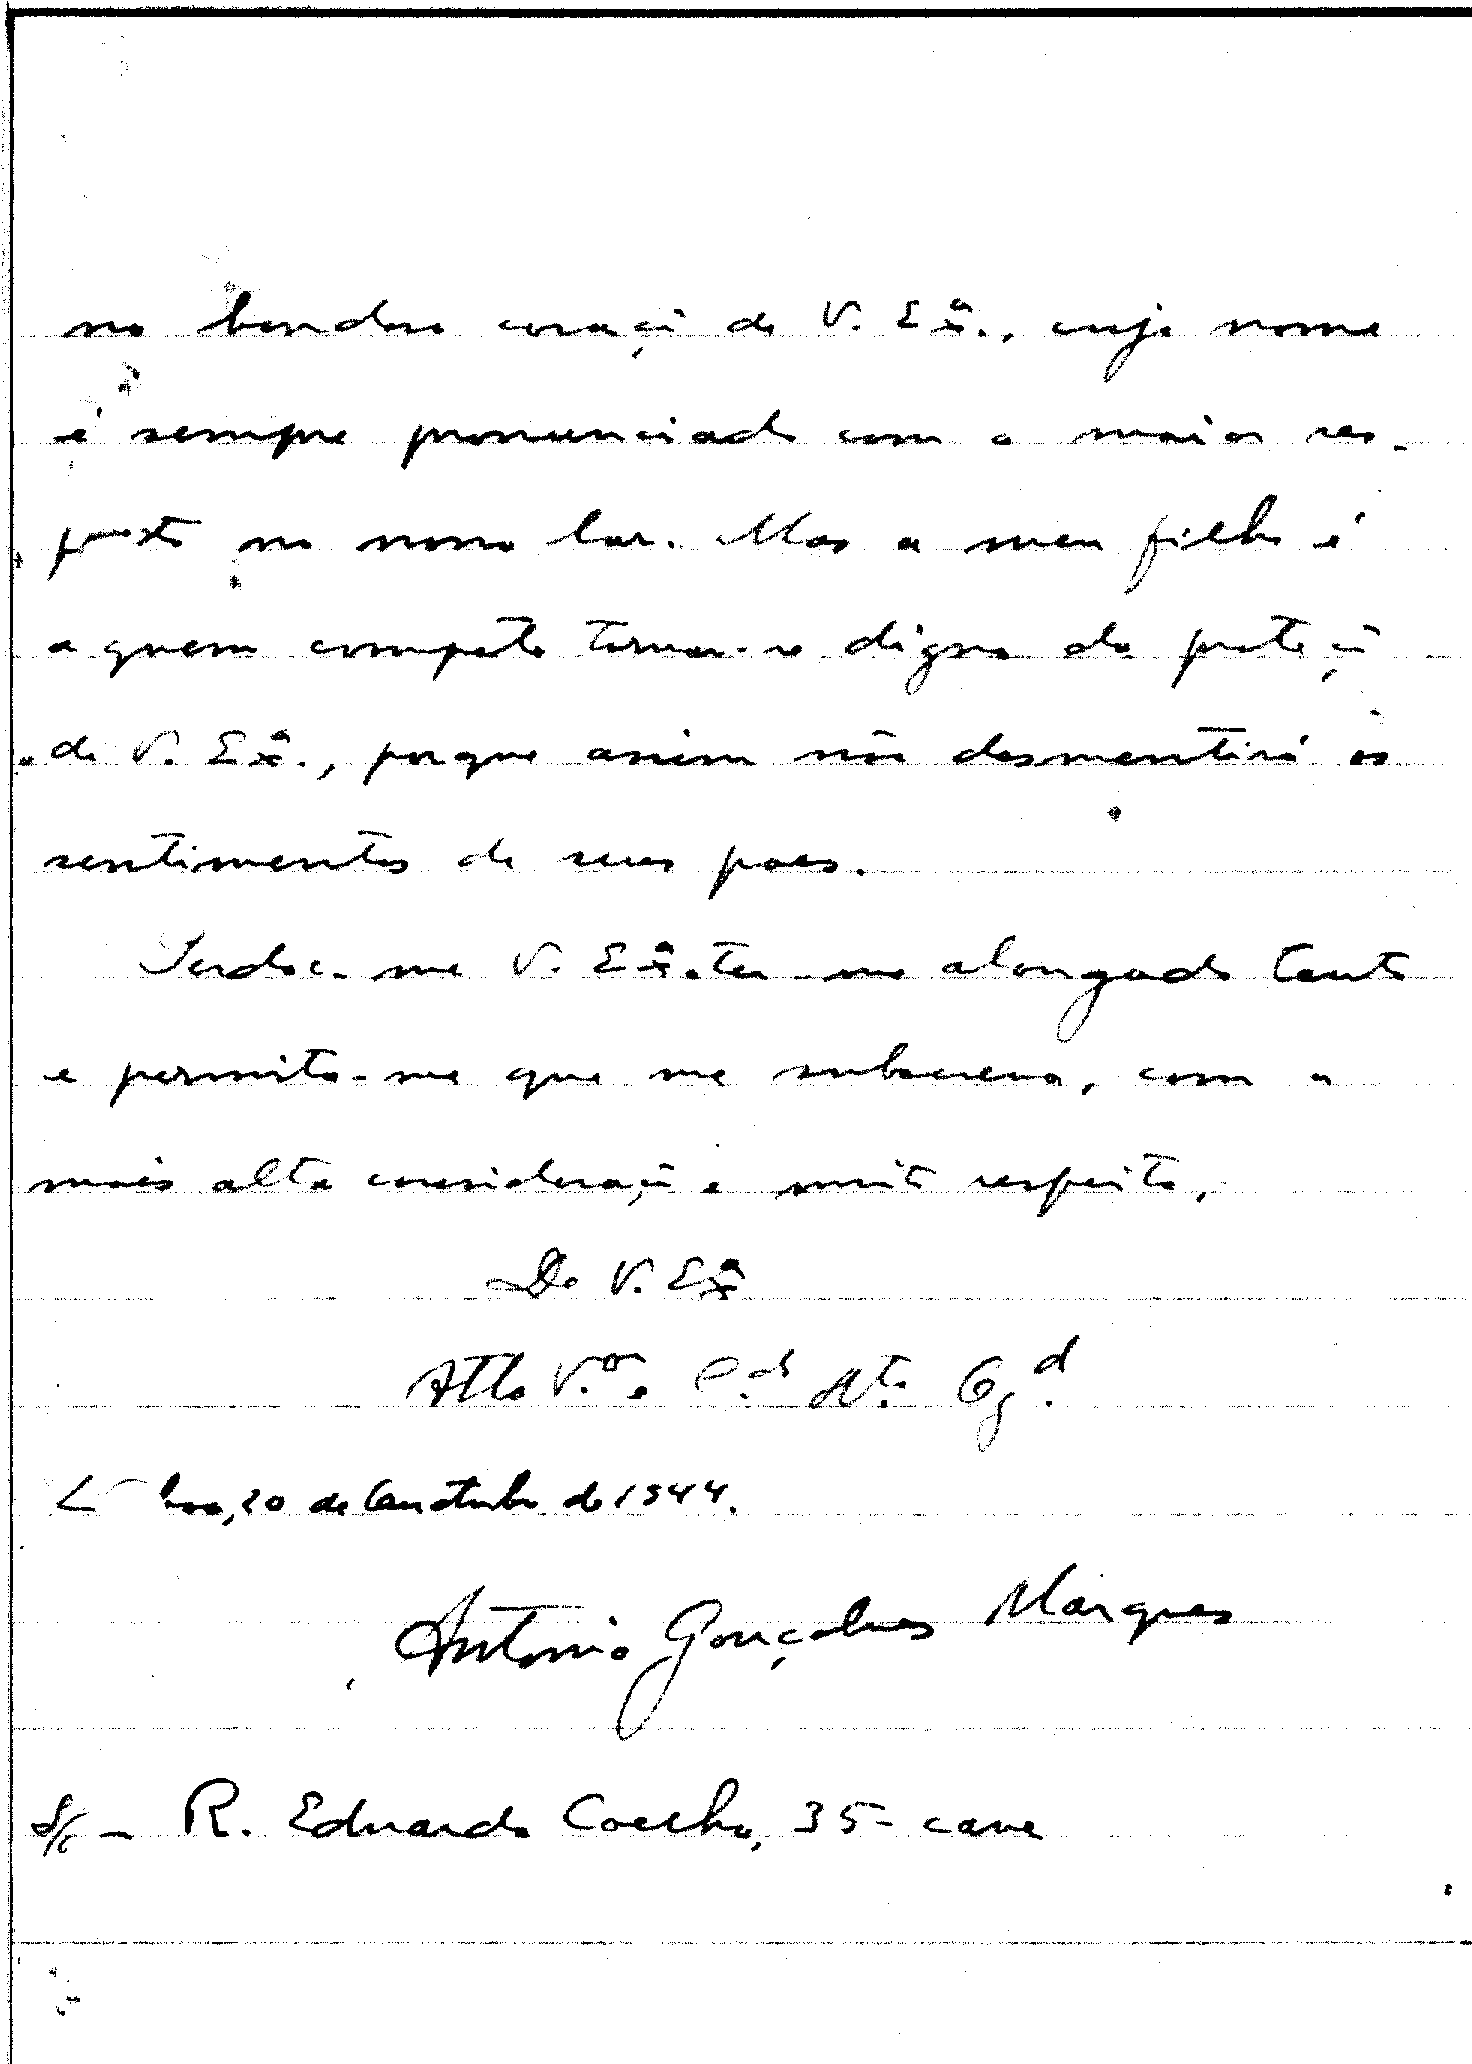 no bondoso coração de V. Exª., cujo nome
é sempre pronunciado com o maior res-
peito no nosso lar. Mas a meu filho é
a quem compete tornar-se digno da proteção
de V. Exª., porque assim não desmentirá os
sentimentos de seus paes.
Perdoe-me V. Exª. ter-me alongado tanto
e permita-me que me subscreva, com a
mais alta consideração e muito respeito,
De V. Exª
Atto V.or e C.do Mto Ogd.
Lisboa, 20 de Outubro de 1944.
Antonio Gonçalves Marques
S/c - R. Eduardo Coelho, 35 - cave